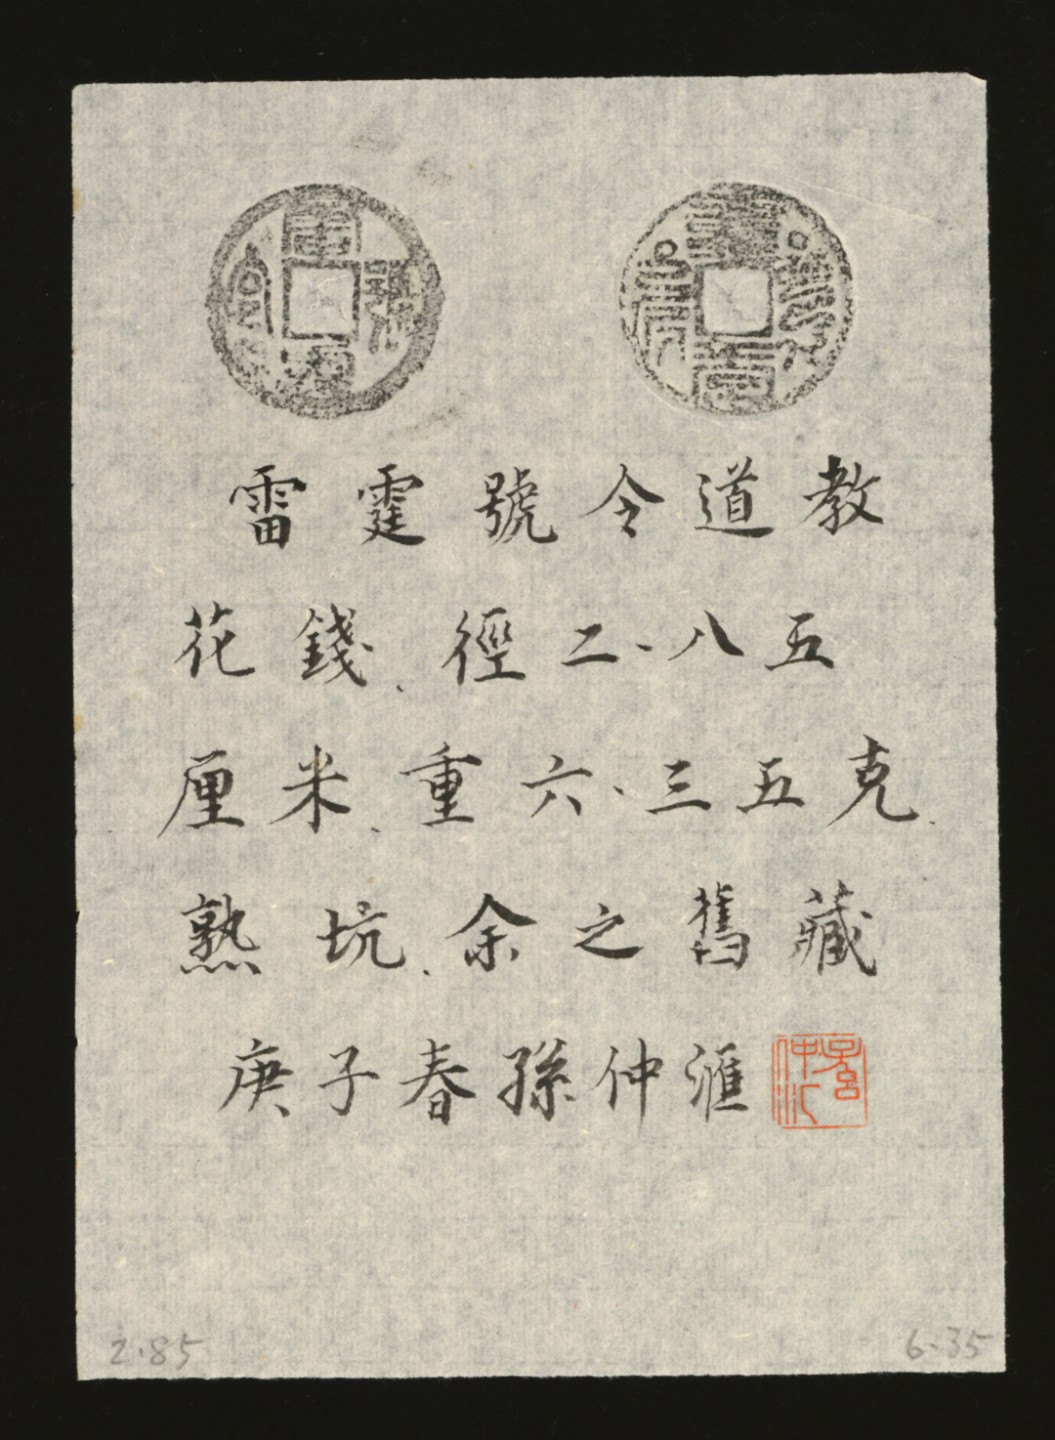 雷霆號令
雷霆號令道教
花錢、徑二、八五
厘米、重六、三五克、
熟坑、余之舊藏
庚子春孫仲滙
孫仲匯
2.85
6.35